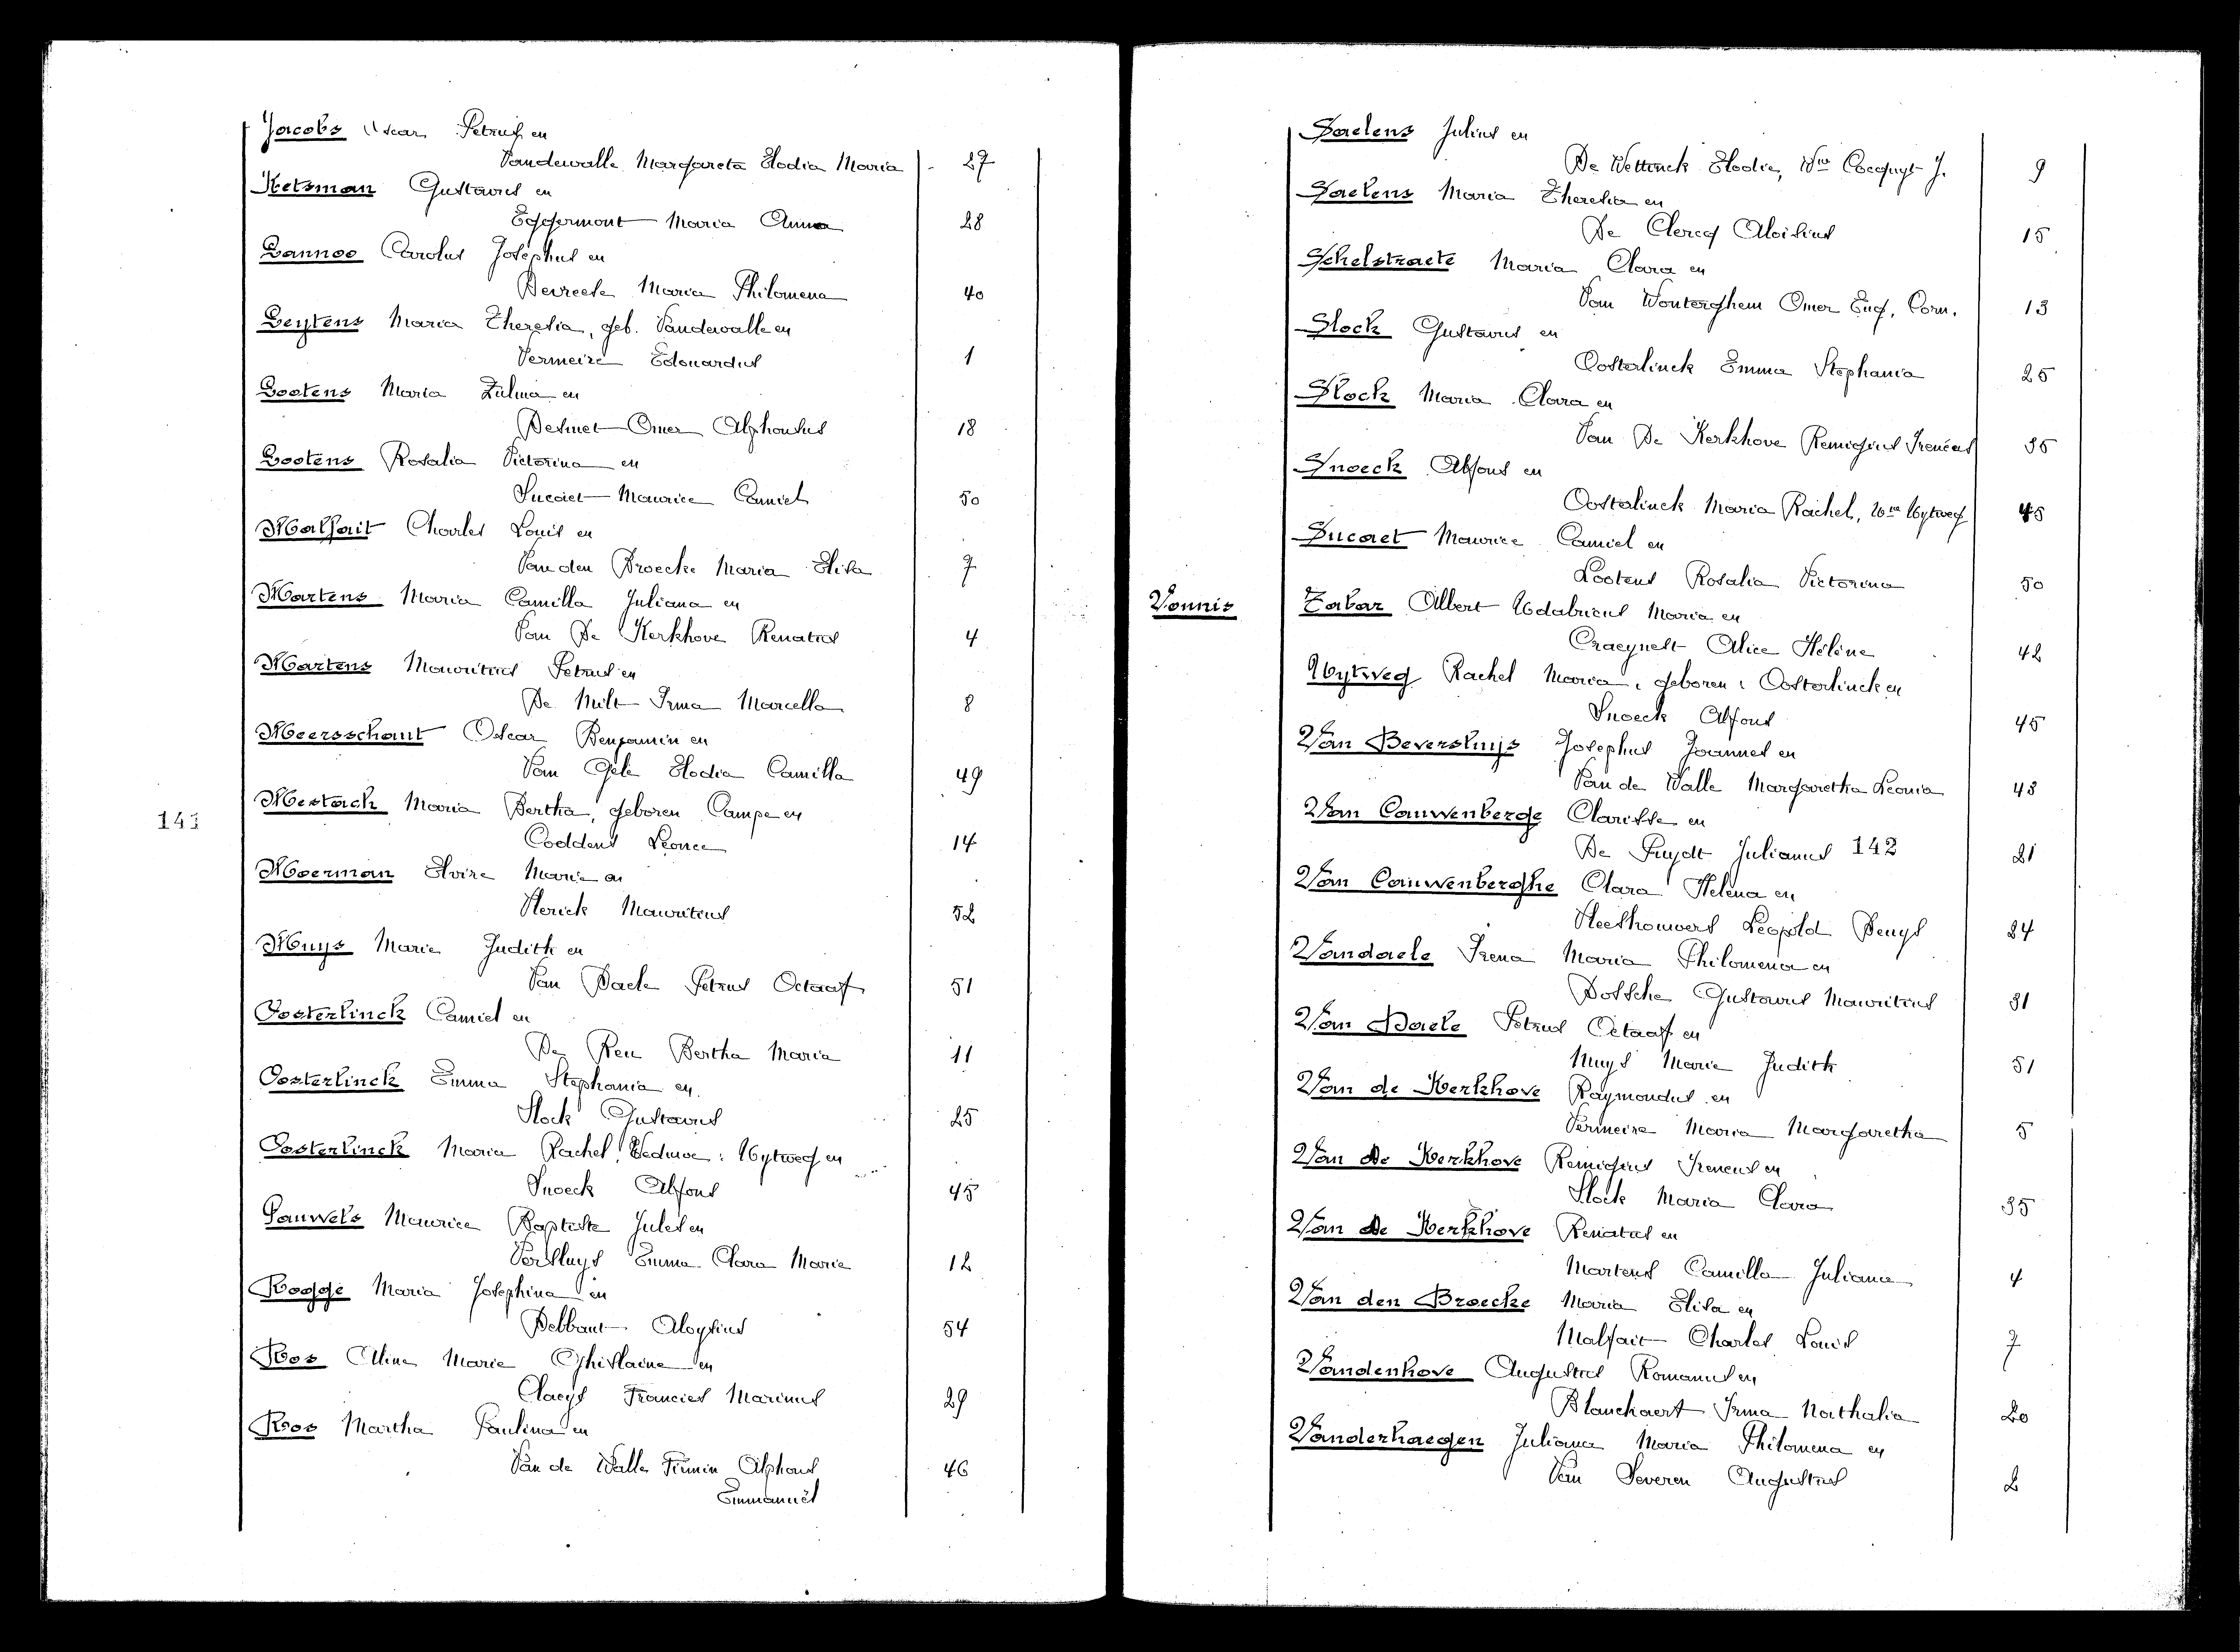 Jacobs Oscar Petrus en
Vandewalle Margareta Elodia Maria 27
Ketsman Gustavus en
Eggermont Maria Anna 28
Lannoo Carolus Josephus en
Devreese Maria Philomena 40
Leytens Maria Theresia, geb. Vandewalle en
Vermeire Edouardus 1
Lootens Maria Zulma en
Desmet Omer Alphonsus 18
Lootens Rosalia Victorina en
Sucaet Maurice Camiel 50
Malfait Charles Louis en
Van den Broecke Maria Elisa 7
Martens Maria Camilla Juliana en
Van De Kerkhove Renatus 4
Martens Mauritius Petrus en
De Milt Irma Marcella 8
Meersschaut Oscar Benjamin en
Van Gele Elodia Camilla 49
143 Mestach Maria Bertha, geboren Campe en
Coddens Leonce 14
Moerman Elvire Marie en
Sterick Mauritius 52
Muys Marie Judith en
Van Daele Petrus Octaaf 51
Oosterlinck Camiel en
De Reu Bertha Maria 11
Oosterlinck Emma Stephania en
Slock Gustavus 25
Oosterlinck Maria Rachel, Weduwe: Uytweg en
Snoeck Alfons 45
Pauwels Maurice Baptiste Jules en
Versluys Emma Clara Marie 12
Rogge Maria Josephina en
Debbaut Aloysius 54
Ros Aline Marie Ghislaine en
Claeys Francies Marinus 29
Roos Martha Paulina en
Van de Walle Firmin Alphons 46
Emmanuël
Saelens Julius en
De Wettinck Elodie, We Cocquyt J. 9
Saelens Maria Theresia en
De Clercq Aloisius 15
Schelstraete Maria Clara en
Van Wonterghem Omer Eug. Corn. 13
Slock Gustavus en
Oosterlinck Emma Stephania 25
Slock Maria Clara en
Van De Kerkhove Remigius Ireneus 35
Snoeck Alfons en
Oosterlinck Maria Rachel, We Uytweg 45
Sucaet Maurice Camiel en
Lootens Rosalia Victorina 50
Vonnis Tabar Albert Udalricus Maria en
Craeynest Alice Hélène 42
Uytweg Rachel Maria, geboren: Oosterlinck en
Snoeck Alfons 45
Van Beversluys Josephus Joannes en
Van de Walle Margaretha Leonia 43
Van Cauwenberge Clarisse en
De Puydt Julianus 142 21
Van Cauwenberghe Clara Helena en
Steethouwers Leopold Denys 24
Vandaele Irena Maria Philomena en
Dossche Gustavus Mauritius 31
Van Daele Petrus Octaaf en
Muys Marie Judith 51
Van de Kerkhove Raymondus en
Vermeire Maria Margaretha 5
Van De Kerkhove Remigius Ireneus en
Slock Maria Clara 35
Van de Kerkhove Renatus en
Martens Camilla Juliana 4
Van den Broecke Maria Elisa en
Malfait Charles Louis 7
Vandenhove Augustus Romanus en
Blanckaert Irma Nathalia 20
Vanderhaegen Juliana Maria Philomena en
Van Severen Augustus 2